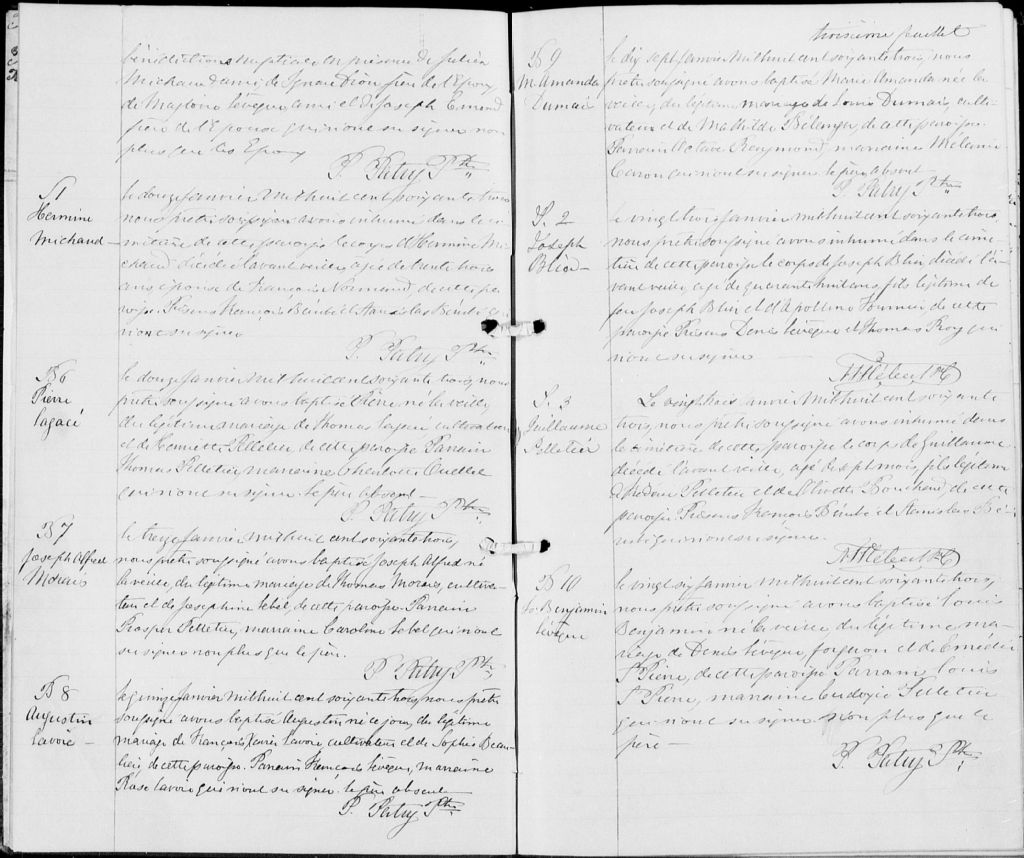 bénédiction nuptiale en présence de Julien
Michaud ami, de Ignace Dion père de l'Epoux
de Magloire Lévêque ami et de Joseph Emond
père de l'Epouse qui n'ont su signer non
plus que les Epoux
P. Patry Ptre
S1
Hermine
Michaud
le douze Janvier mil huit cent soixante trois
nous prêtre soussigné avons inhumé dans le ci-
metière de cette paroisse le corps d'Hermine Mi-
chaud décédée l'avant veille, agée de trente trois
ans épouse de François Normand de cette pa-
roisse Présens François Bérubé et Stanislas Bérubé qui
n'ont su signer
P. Patry Ptre
B6
Pierre
Lagacé
le douze Janvier mil huit cent soixante trois, nous
prêtre soussigné avons baptisé Pierre né la veille,
du légitime mariage de Thomas Lagacé cultivateur
et de Henriette Pelletier de cette paroisse Parrain
Thomas Pelletier, marraine Charlotte Ouellet
qui n'ont su signer. le père absent —
P. Patry Ptre
B7
Joseph Alfred
Morais
le treize Janvier mil huit cent soixante trois,
nous prêtre soussigné avons baptisé Joseph Alfred né
la veille, du légitime mariage de Thomas Morais, cultiva-
teur et de Josephine Lebel, de cette paroisse. Parrain
Prosper Pelletier, marraine Caroline Lebel qui n'ont
su signer non plus que le père.
P. Patry Ptre
B8
Augustin
Lavoie —
le quinze Janvier mil huit cent soixante trois, nous prêtre
soussigné avons baptisé Augustin né ce jour, du légitime
mariage de François Xavier Lavoie, cultivateur et de Sophie Beau-
lieu, de cette paroisse. Parrain François Lévêque, marraine
Rose Lavoie qui n'ont su signer. le père absent
P. Patry Ptre
troisième feuillet
B9
M. Amanda
Dumais
le dix sept Janvier mil huit cent soixante trois, nous
prêtre soussigné avons baptisé Marie Amanda née la
veille, du légitime mariage de Louis Dumais, culti-
vateur et de Mathilde Bélanger, de cette paroisse.
Parrain Octave Raymond, marraine Mélanie
Caron qui n'ont su signer. le père absent
P. Patry Ptre
S. 2
Joseph
Blier —
le vingt trois Janvier mil huit cent soixante trois,
nous prêtre soussigné avons inhumé dans le cime-
tière de cette paroisse le corps de Joseph Blier décédé l'a-
vant veille, agé de quarante huit ans, fils légitime de
feu Joseph Blier et d'Apolline Fournier de cette
paroisse Présens Denis Lévêque et Thomas Roy qui
n'ont su signer
S. 3
Guillaume
Pelletier
Le vingt trois Janvier mil huit cent soixante
trois, nous prêtre soussigné avons inhumé dans
le cimetière de cette paroisse le corps de Guillaume
décédé l'avant veille, agé de sept mois, fils légitime
Pelletier et de Bouchard, de cette
paroisse Présens François Bérubé et Stanislas Bé-
rubé qui n'ont su signer.
B 10
Ls Benjamin
Lévêque
le vingt six Janvier mil huit cent soixante trois,
nous prêtre soussigné avons baptisé Louis
Benjamin né la veille du légitime ma-
riage de Denis Lévêque, forgeron et de Emédie
St Pierre, de cette paroisse Parrain Louis
St Pierre, marraine Eudoxie Pelletier
qui n'ont su signer non plus que le
père —
P. Patry Ptre